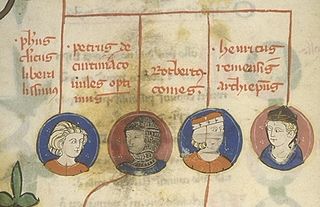 · ph̄us
cl'icus
liberal
lissimus
· petrus de
curtinaco
miles opti
mus
· Rotbertus
comes ·
· henricus
remensis
archiep̄us